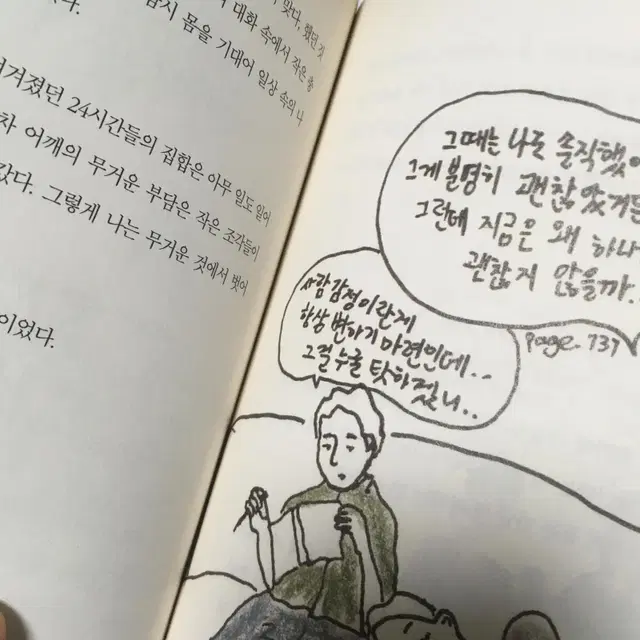 맞다. 했던 것
대화 속에서 작은
잠시 몸을 기대어 일상 속의 나
24시간들의 집합은 아무 일도 일어
어깨의 무거운 부담은 작은 조각들이
갔다. 그렇게 나는 무거운 것에서 벗어
이었다.
그때는 나도 솔직했
그게 분명히 괜찮았거든
그런데 지금은 왜 하나
괜찮지 않을까..
page. 137
사람 감정이란게
항상 변하기 마련인데..
그걸 누굴 탓하겠니..